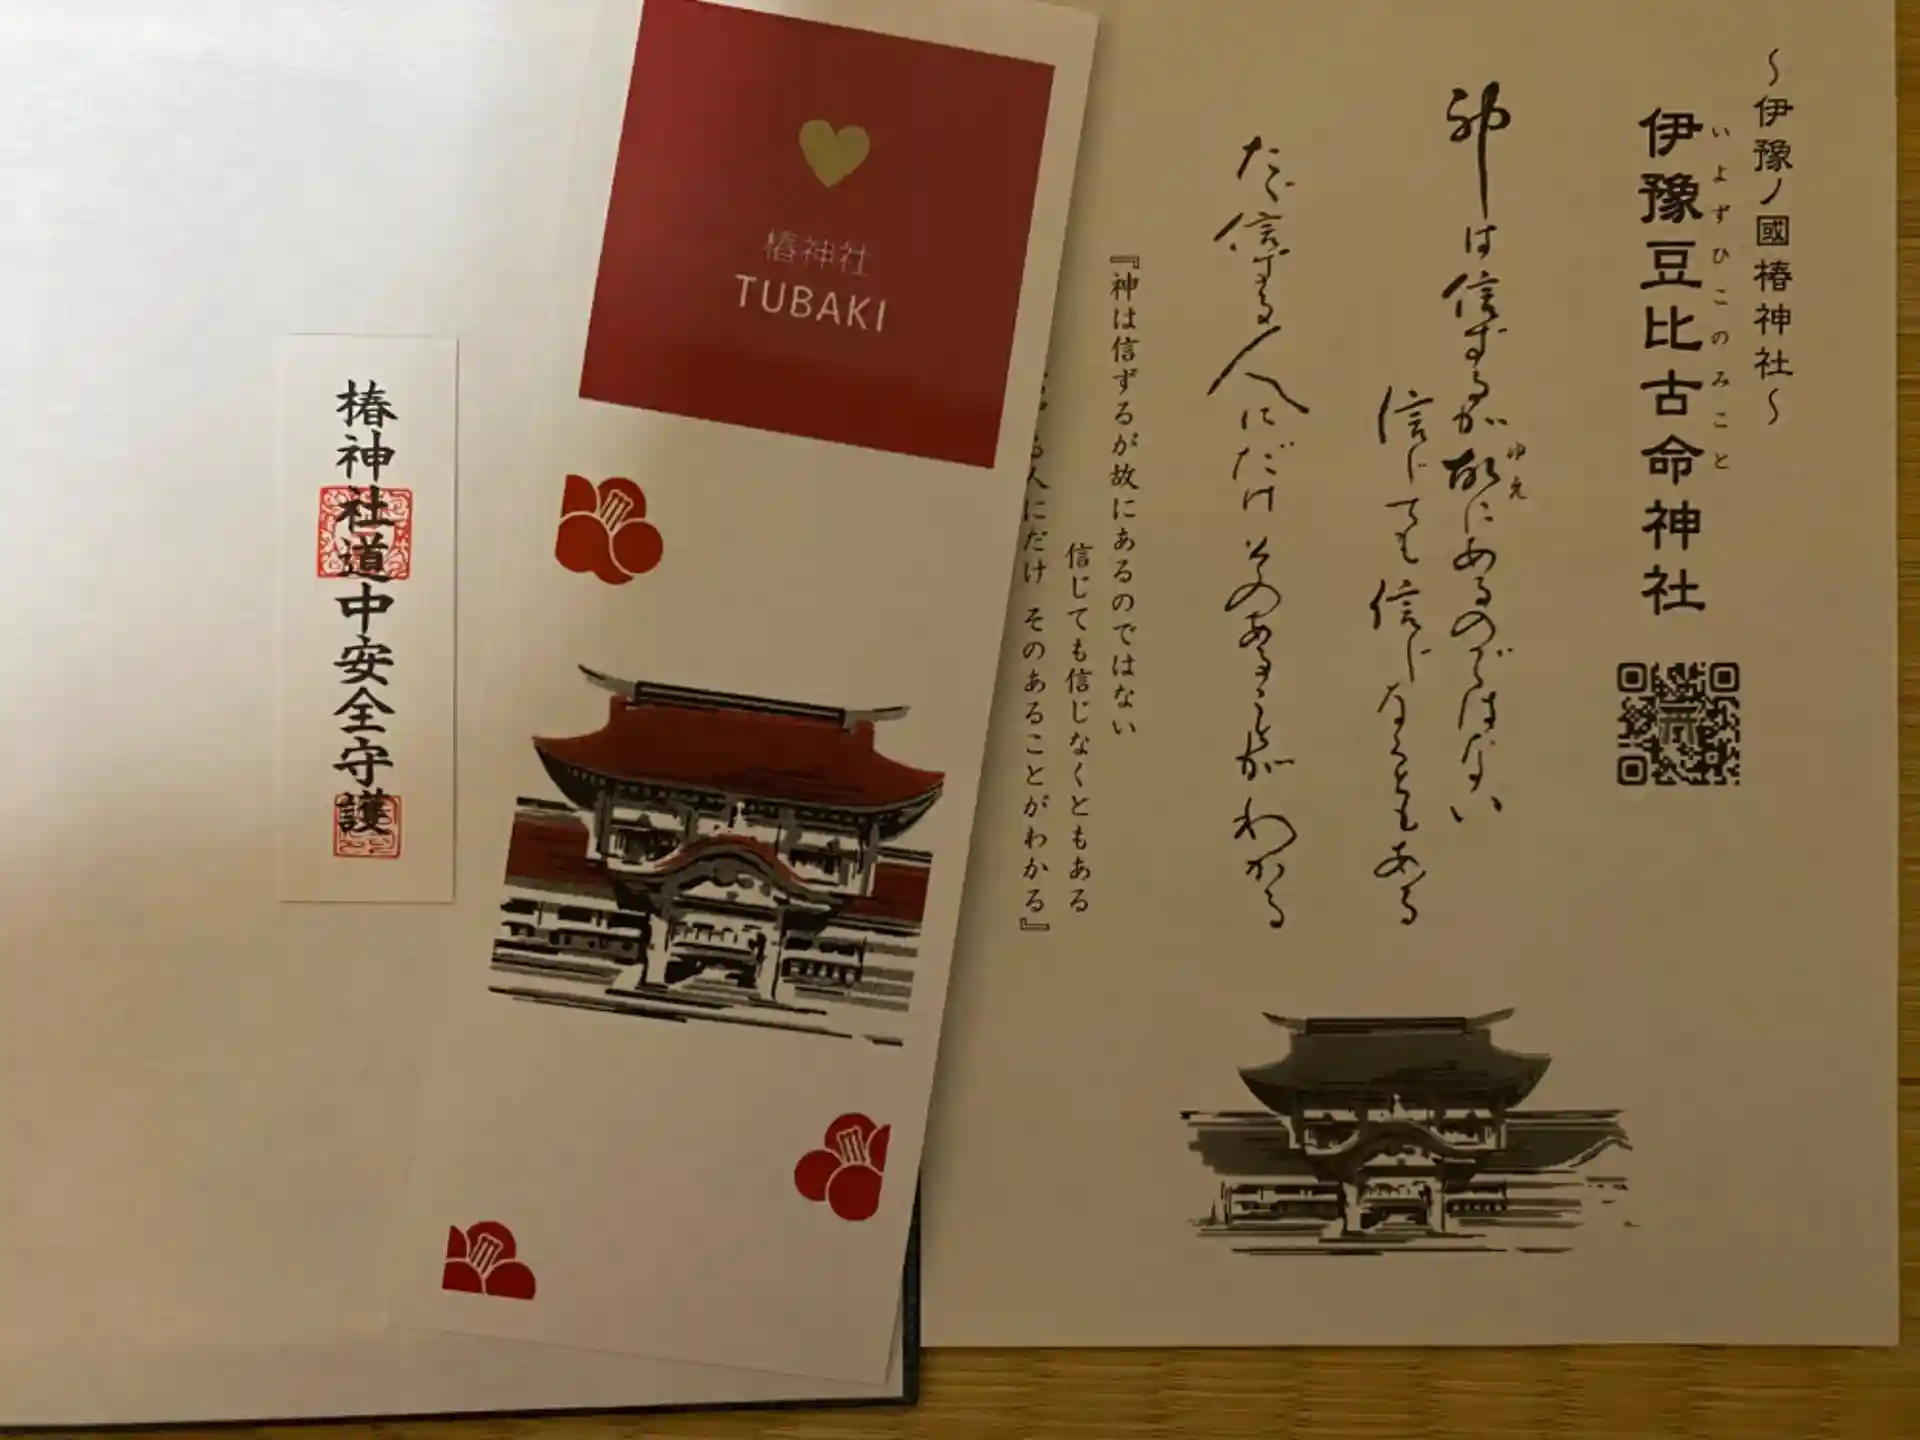 ～伊豫ノ國椿神社～
伊豫豆比古命神社
いよずひこのみこと
神は信ずるが故にあるのではない
ゆえ
信じても信じなくともある
たゞ信ずる人にだけそのあることがわかる
『神は信ずるが故にあるのではない
信じても信じなくともある
る人にだけ そのあることがわかる』
椿神社
TUBAKI
椿神社道中安全守護